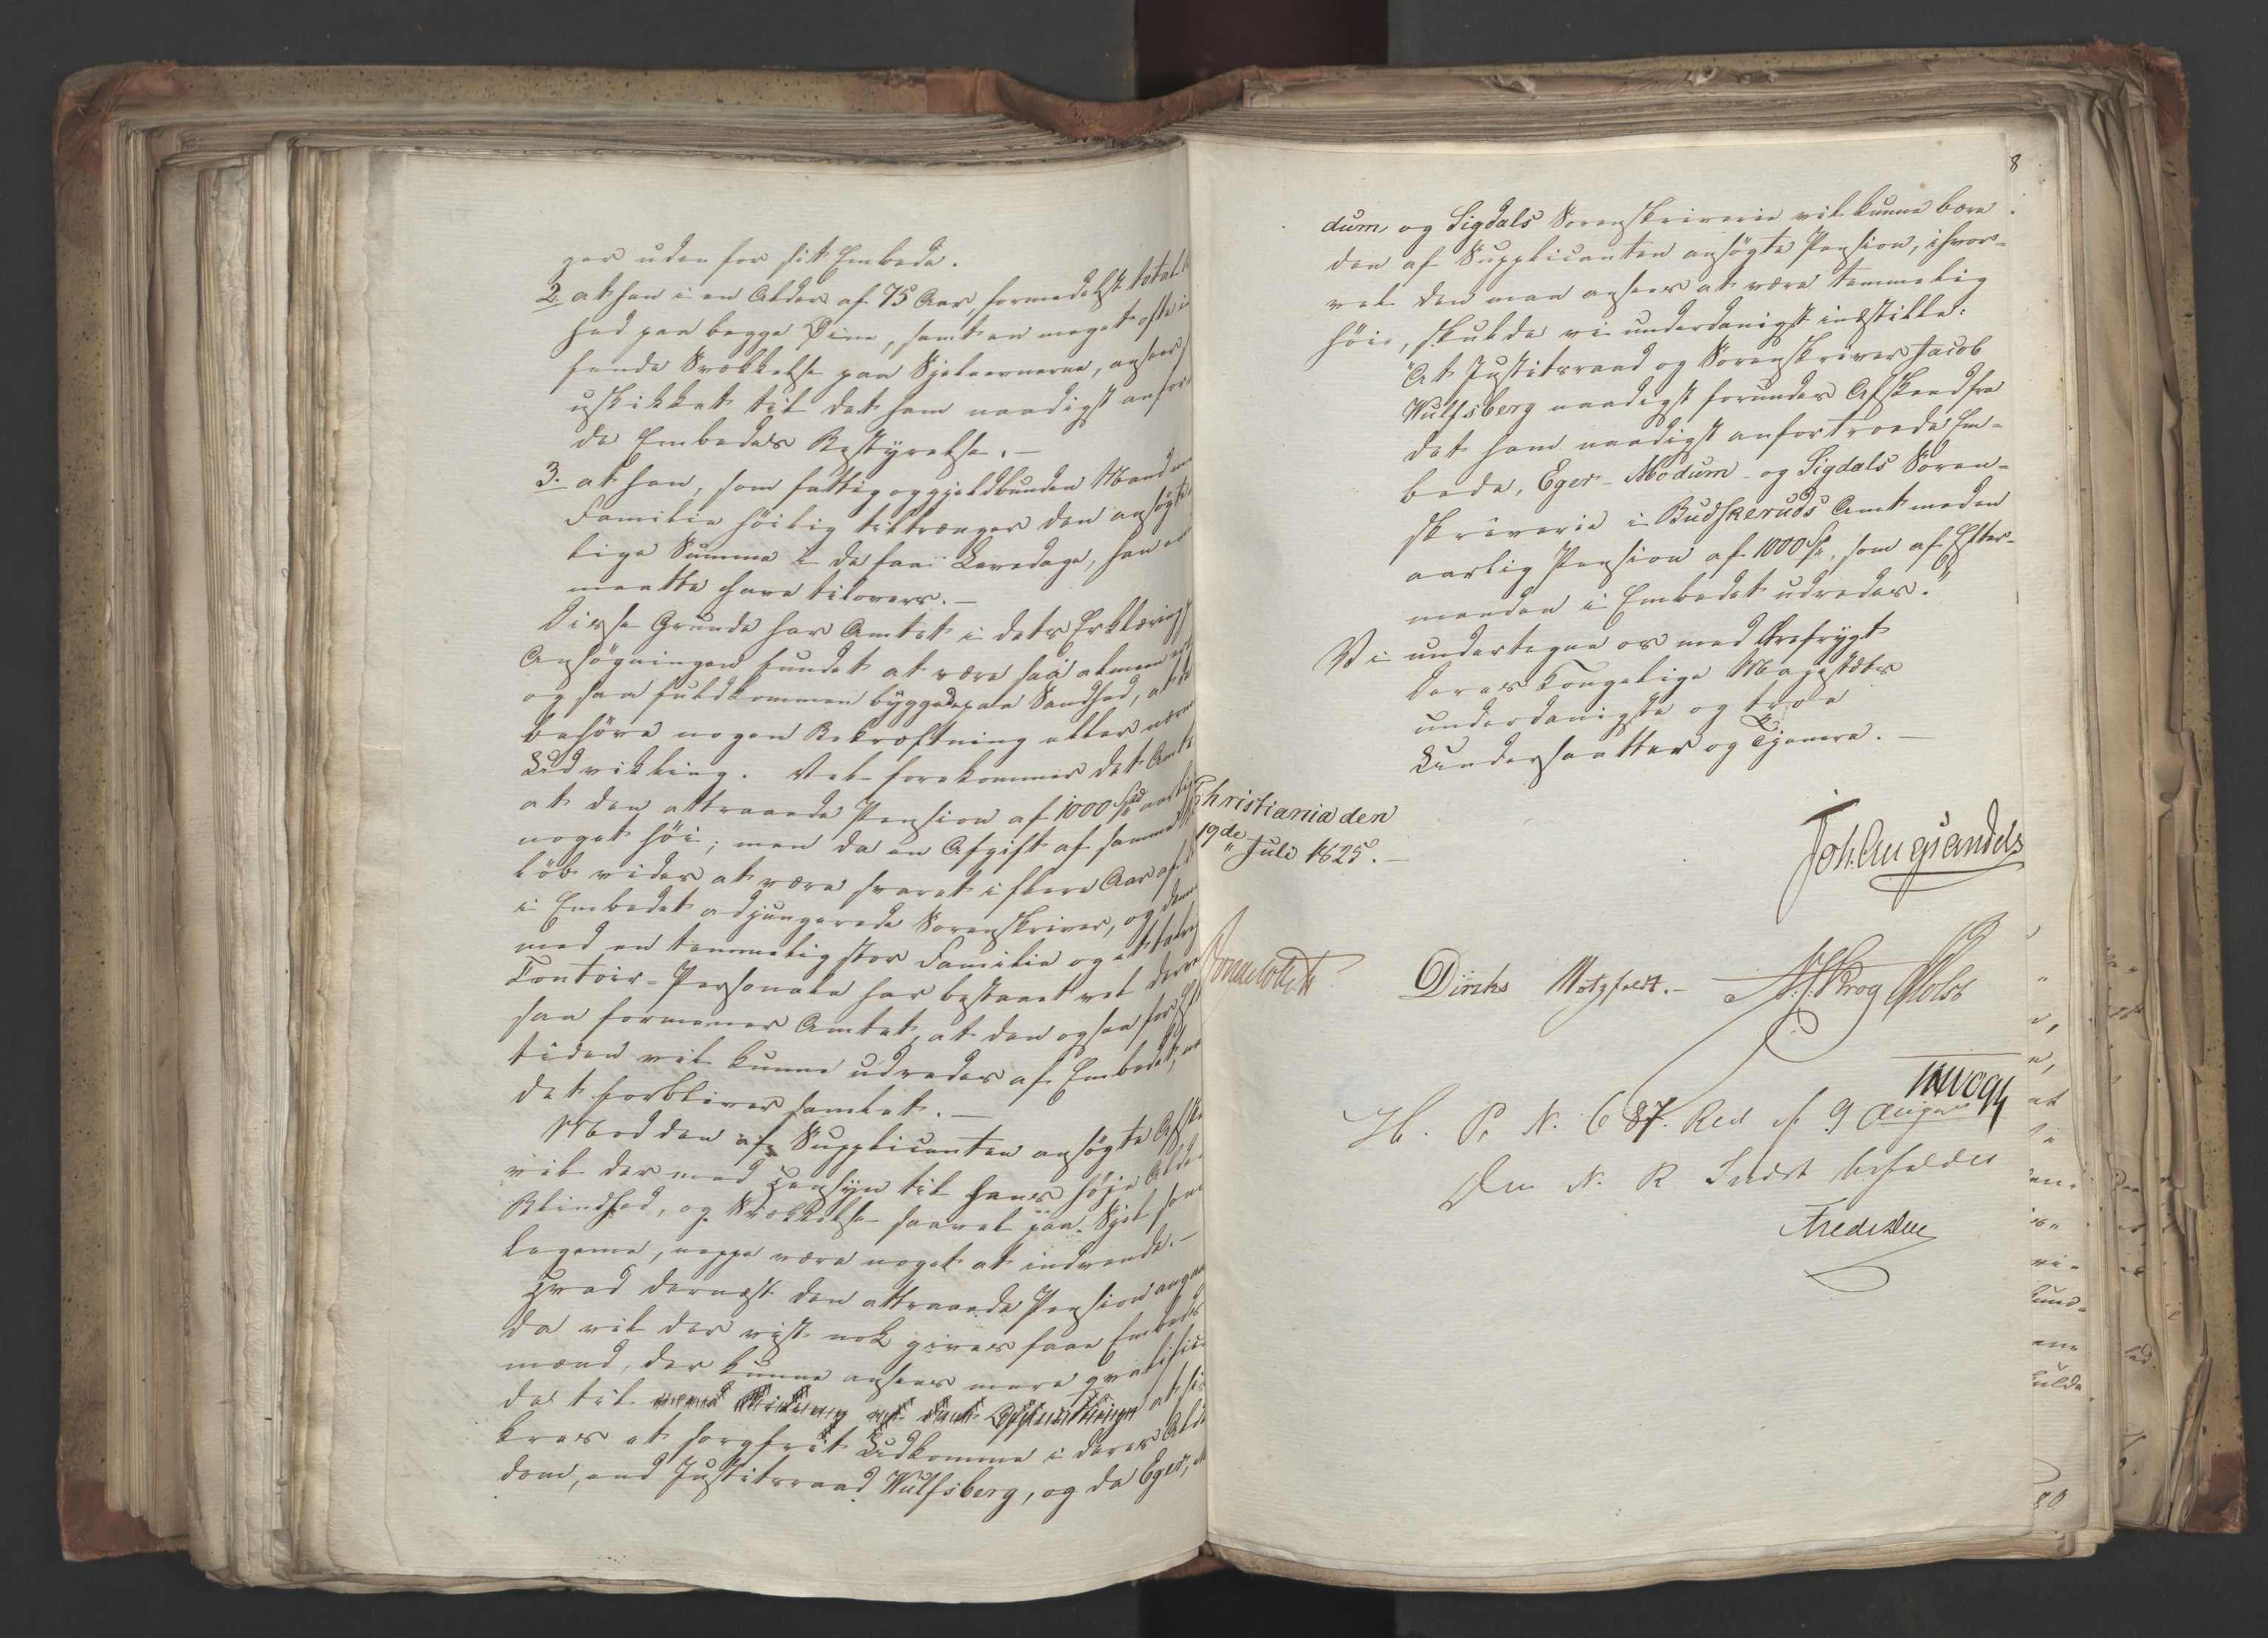 ger uden for sit Embede.
2. at han i en Alder af 75 Aar, formedelst total
hed paa begge Öine, samt en meget ofte
fende Svækkelse paa Sjeleevnerne, ansees
uskikket til det ham naadigst anfor
de Embedes Bestyrelse. —
3. at han, som fattig og gjeldbunden Mand
Familie höilig tiltrænger den ansögte
lige Summa i de faa Levedage, han
maatte have tilovers. —
Disse Grunde har Amtet i dets Erklæring
Ansögningen fundet at være saa almeen
og saa fuldkommen byggede paa Sandhed, at
behöve nogen Bekræftning eller nærm
Udvikling. Vel forekommer det Amtet
at den attraaede Pension af 1000 Spd aarlig
noget höi; men da en Afgift af samme
löb vides at være svaret i flere Aar af
i Embedet adjungerede Sorenskriver, og denne
med en temmelig stor Familie og et talrig
Contoir-Personale har bestaaet vel derve
saa formener Amtet, at den ogsaa for
tiden vil kunne udredes af Embedet,
det forbliver samlet. —
Mod den af Supplicanten ansögte Afske
vil der med Hensyn til hans höje Alder
Blindhed, og Svækkelse saavel paa Sjel som
Legeme, neppe være noget at indvende. —
Hvad dernæst den attraaede Pension angaa
da vil der vist nok gives faae Embeds
mænd, der kunne ansees mere qvalifice
de til at sik
kres et sorgfrit Udkomme i deres Alder
dom, end Justitsraad Wulfsberg, og da Eger,
8
dum, og Sigdals Sorenskriverie vil kunne bære
den af Supplicanten ansögte Pension, ihvor-
vel den maa ansees at være temmelig
höi, skulde vi underdanigst indstille:
"At Justitsraad og Sorenskriver Jacob
Wulfsberg naadigst forundes Afskeed fra
det ham naadigst anfortroede Em-
bede, Eger- Modum- og Sigdals Soren-
skriverie i Budskeruds Amt med en
aarlig Pension af 1000 Spd, som af Efter-
manden i Embedet udredes."
Vi undertegne os med Ærefrygt
Deres Kongelige Majestæts
underdanigste og troe
Undersaatter og Tjenere. —
Christiania den
19de Juli 1825. —
Joh. Aug. Sandels
Diriks Motzfeldt. — Krog Holst
H. P. N. 687. Res af 9 August
Den N. R. Indst bifaldes
Fred. Due